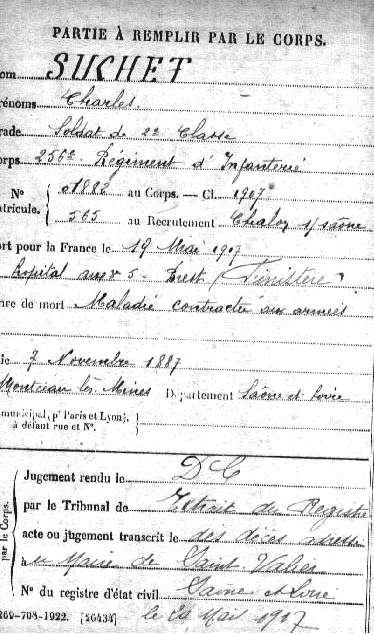 PARTIE À REMPLIR PAR LE CORPS.
om SUCHET
rénoms Charles
rade Soldat de 2e Classe
orps 256e Régiment d'Infanterie
N° 01882 au Corps. — Cl. 1907
atricule. 565 au Recrutement Chalon s/ saône
ort pour la France le 19 Mai 1917
hopital auxre 5 - Brest (Finistère)
nre de mort Maladie contractée aux armées
é le 7 Novembre 1887
Montceau les Mines Département Saône et Loire
municipal (pr Paris et Lyon),
à défaut rue et N°.
par le Corps.
Jugement rendu le D C
par le Tribunal de Extrait du Registre
acte ou jugement transcrit le des décès adressé
à la Mairie de Saint Vallier
N° du registre d'état civil Saône et Loire
269-708-1922. [26434] le 24 Mai 1917